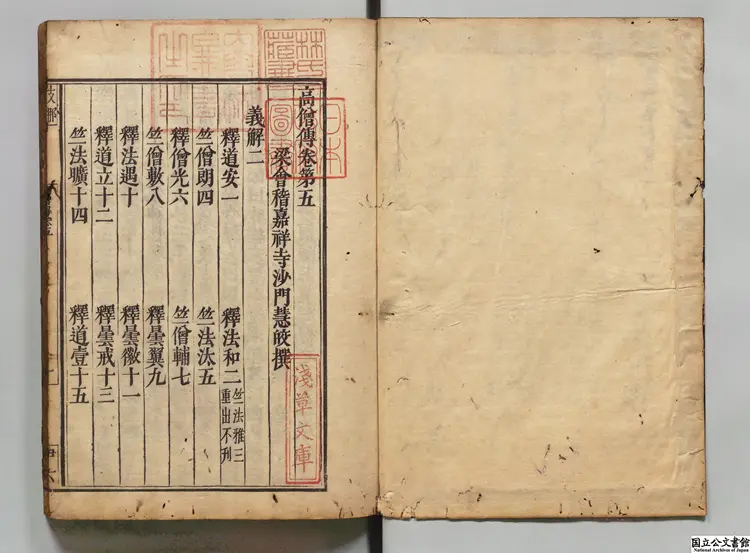 高僧傳卷第五
梁會稽嘉祥寺沙門慧皎撰
義解二
釋道安一 釋法和二 竺法雅三重出不刋
竺僧朗四 竺法汰五
釋僧光六 竺僧輔七
竺僧敷八 釋曇翼九
釋法遇十 釋曇徽十一
釋道立十二 釋曇戒十三
竺法曠十四 釋道壹十五
林氏藏書
日本
圖書
淺草文庫
国立公文書館
National Archives of Japan